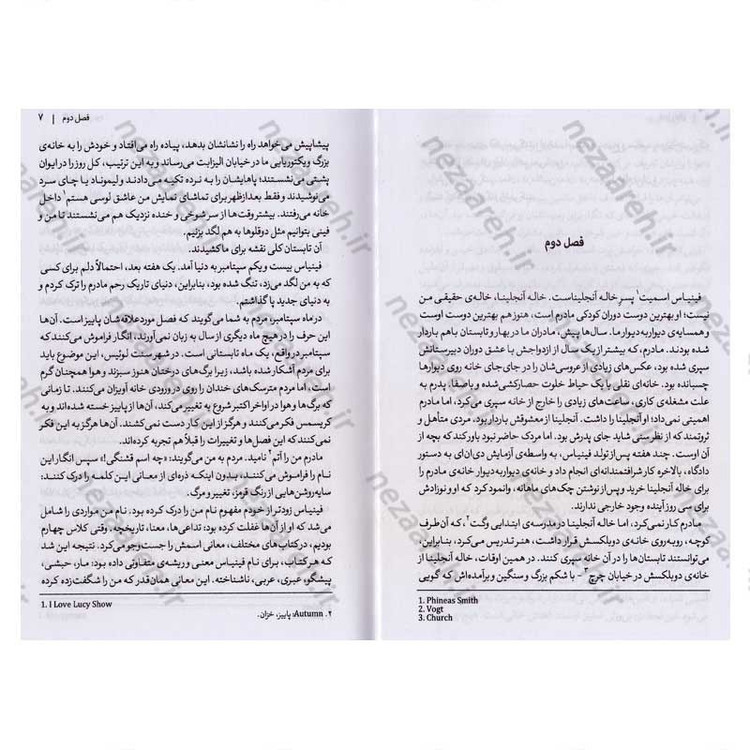 فصل دوم
فینیاس اسمیت¹ پسرِ خاله آنجلیناست. خاله آنجلینا، خاله‌ی حقیقی من
نیست؛ او بهترین دوست دوران کودکی مادرم است، هنوز هم بهترین دوست اوست
و همسایه‌ی دیواربه‌دیوار ما. سال‌ها پیش، مادران ما در بهار و تابستان باهم باردار
شده بودند. مادرم، که بیشتر از یک سال از ازدواجش با عشق دوران دبیرستانش
سپری شده بود، عکس‌های زیادی از عروسی‌شان را در جای‌جای خانه روی دیوارها
چسبانده بود. خانه‌ای نقلی با یک حیاط خلوت حصارکشی‌شده و باصفا. پدرم به
علت مشغله‌ی کاری، ساعت‌های زیادی را خارج از خانه سپری می‌کرد، اما مادرم
اهمیتی نمی‌داد؛ او آنجلینا را داشت. آنجلینا از معشوقش باردار بود، مردی متأهل و
ثروتمند که از نظر سنی شاید جای پدرش بود. اما مردک حاضر نبود باور کند که بچه از
آن اوست. چند هفته پس از تولد فینیاس، به واسطه‌ی آزمایش دی‌ان‌ای به دستور
دادگاه، بالاخره کار شرافتمندانه‌ای انجام داد و خانه‌ی دیواربه‌دیوار خانه‌ی مادرم را
برای خاله آنجلینا خرید و پس از نوشتن چک‌های ماهانه، وانمود کرد که او و نوزادش
برای سی روز آینده وجود خارجی ندارند.
مادرم کار نمی‌کرد، اما خاله آنجلینا در مدرسه‌ی ابتدایی وگت²، که آن‌طرف
کوچه، روبه‌روی خانه‌ی دوبلکسش قرار داشت، هنر تدریس می‌کرد، بنابراین،
می‌توانستند تابستان‌ها را در آن خانه سپری کنند. در همین اوقات، خاله آنجلینا از
خانه‌ی دوبلکسش در خیابان چرچ³ – با شکم بزرگ و سنگین و برآمده‌اش که گویی
1. Phineas Smith
2. Vogt
3. Church
فصل دوم | ۷
پیشاپیش می‌خواهد راه را نشانشان بدهد، پیاده راه می‌افتاد و خودش را به خانه‌ی
بزرگ ویکتوریایی ما در خیابان الیزابت می‌رساند و به این ترتیب، کل روز را در ایوان
پشتی می‌نشستند؛ پاهایشان را به نرده تکیه می‌دادند و لیموناد یا چای سرد
می‌نوشیدند و فقط بعدازظهر برای تماشای نمایش من عاشق لوسی هستم¹ داخل
خانه می‌رفتند. بیشتر وقت‌ها از سر شوخی و خنده نزدیک هم می‌نشستند تا من و
فینی بتوانیم مثل دوقلوها به هم لگد بزنیم.
آن تابستان کلی نقشه برای ما کشیدند.
فینیاس بیست و یکم سپتامبر به دنیا آمد. یک هفته بعد، احتمالاً دلم برای کسی
که به من لگد می‌زد، تنگ شده بود، بنابراین، دنیای تاریک رحم مادرم را ترک کردم و
به دنیای جدید پا گذاشتم.
در ماه سپتامبر، مردم به شما می‌گویند که فصل موردعلاقه‌شان پاییز است. آن‌ها
این حرف را در هیچ ماه دیگری از سال به زبان نمی‌آورند، انگار فراموش می‌کنند که
سپتامبر در واقع، یک ماه تابستانی است. در شهر سنت لوئیس، این موضوع باید
برای مردم آشکار شده باشد، زیرا برگ‌های درختان هنوز سبزند و هوا همچنان گرم
است، اما مردم مترسک‌های خندان را روی در ورودی خانه آویزان می‌کنند. تا زمانی
که برگ‌ها و هوا در اواخر اکتبر شروع به تغییر می‌کند، آن‌ها از پاییز خسته شده‌اند و به
کریسمس فکر می‌کنند و هرگز از این کار دست نمی‌کشند. آن‌ها هرگز به این فکر
نمی‌کنند که این فصل‌ها و تغییرات را قبلاً هم تجربه کرده‌اند.
مادرم من را آتم² نامید. مردم به من می‌گویند: «چه اسم قشنگی!» سپس انگار این
نام را فراموش می‌کنند، بدون اینکه ذره‌ای از معانی این کلمه را درک کنند:
سایه‌روشن‌هایی از رنگ قرمز، تغییر و مرگ.
فینیاس زودتر از خودم مفهوم نام من را درک کرده بود. نام من مواردی را شامل
می‌شد که او از آن‌ها غفلت کرده بود: تداعی‌ها، معنا، تاریخچه. وقتی کلاس چهارم
بودیم، در کتاب‌های مختلف، معانی اسمش را جست‌وجو می‌کرد. نتیجه این شد
که هر کتاب، برای نام فینیاس معنی و ریشه‌ی متفاوتی داده بود: مار، حبشی،
پیشگو، عبری، عربی، ناشناخته. این معانی همان‌قدر که من را شگفت‌زده کرده
1. I Love Lucy Show
۲. Autumn: پاییز، خزان.
nezaareh.ir